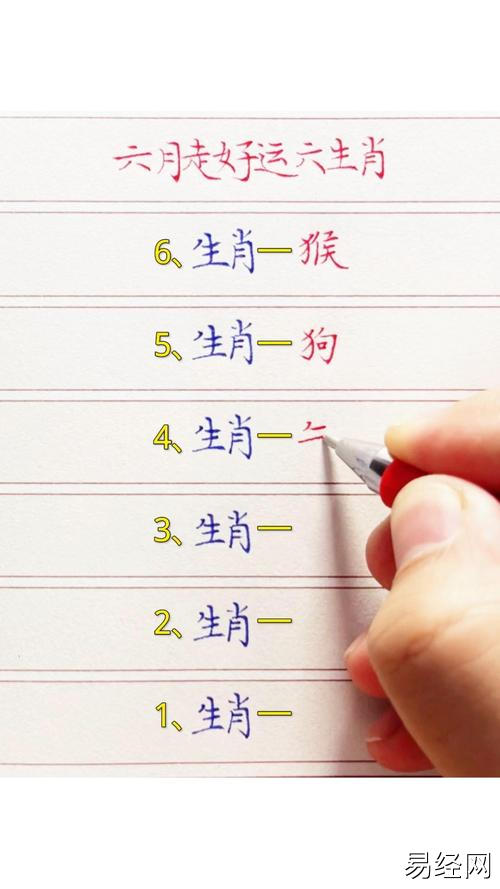 六月走好运六生肖
6、生肖一猴
5、生肖一狗
4、生肖一
3、生肖一
2、生肖一
1、生肖一
易经网